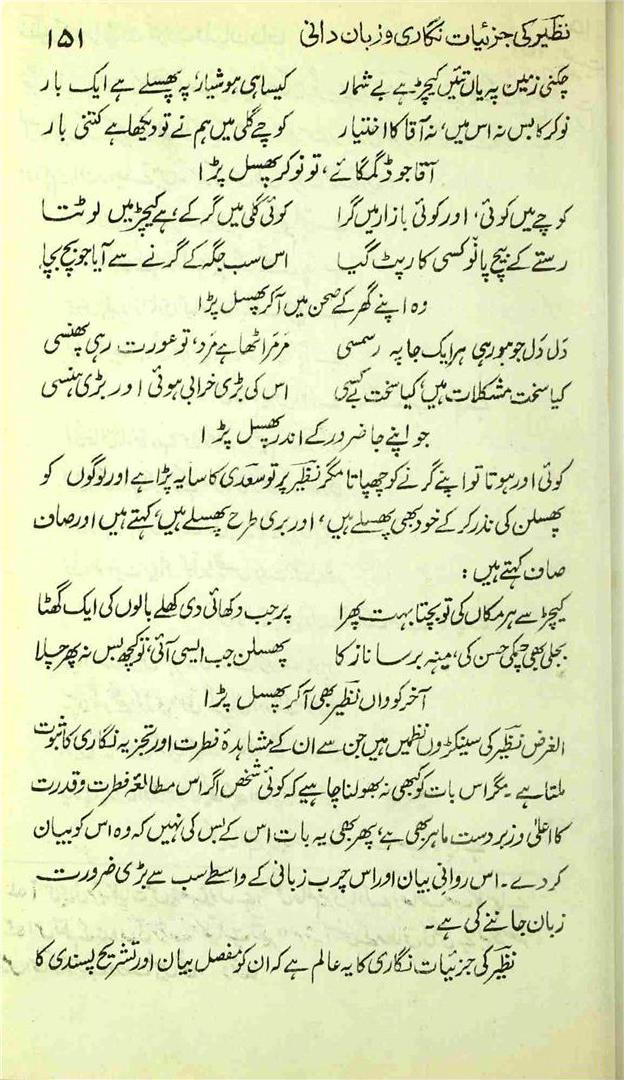 نظیر کی جزئیات نگاری و زبان دانی ۱۵۱
چکنی زمین پہ یاں تئیں کیچڑ ہے بے شمار کیسا ہی ہوشیار، پہ پھسلے ہے ایک بار
نوکر کا بس نہ اس میں، نہ آقا کا اختیار کوچے گلی میں ہم نے تو دیکھا ہے کتنی بار
آقا جو ڈگمگائے، تو نوکر پھسل پڑا
کوچے میں کوئی، اور کوئی بازار میں گرا کوئی گلی میں گر کے، ہے کیچڑ میں لوٹتا
رستے کے بیچ پانو کسی کا رپٹ گیا اس سب جگہ کے گرنے سے آیا جو بچ بچا
وہ اپنے گھر کے صحن میں آ کر پھسل پڑا
دَل دَل جو ہو رہی ہر ایک جا پہ رسمسی مَر مَر اٹھا ہے مَرد، تو عورت رہی پھنسی
کیا سخت مشکلات ہیں، کیا سخت بے کسی اس کی بڑی خرابی ہوئی اور بڑی ہنسی
جو اپنے جا ضرور کے اندر پھسل پڑا
کوئی اور ہوتا تو اپنے گرنے کو چھپاتا مگر نظیر پر تو سعدی کا سایہ پڑا ہے اور لوگوں کو
پھسلن کی نذر کر کے خود بھی پھسلے ہیں، اور بری طرح پھسلے ہیں، کہتے ہیں اور صاف
صاف کہتے ہیں :
کیچڑ سے ہر مکاں کی تو بچتا بہت پھرا پر جب دکھائی دی کھلے بالوں کی ایک گھٹا
بجلی بھی چمکی حسن کی، مینہ برسا ناز کا پھسلن جب ایسی آئی، تو کچھ بس نہ پھر چلا
آخر کو واں نظیر بھی آ کر پھسل پڑا
الغرض نظیر کی سینکڑوں نظمیں ہیں جن سے ان کے مشاہدۂ فطرت اور تجزیہ نگاری کا ثبوت
ملتا ہے۔ مگر اس بات کو کبھی نہ بھولنا چاہیے کہ کوئی شخص اگر اس مطالعۂ فطرت و قدرت
کا اعلیٰ و زبردست ماہر بھی ہے، پھر بھی یہ بات اس کے بس کی نہیں کہ وہ اس کو بیان
کر دے۔ اس روانی بیان اور اس چرب زبانی کے واسطے سب سے بڑی ضرورت
زبان جاننے کی ہے۔
نظیر کی جزئیات نگاری کا یہ عالم ہے کہ ان کو مفصل بیان اور تشریح پسندی کا